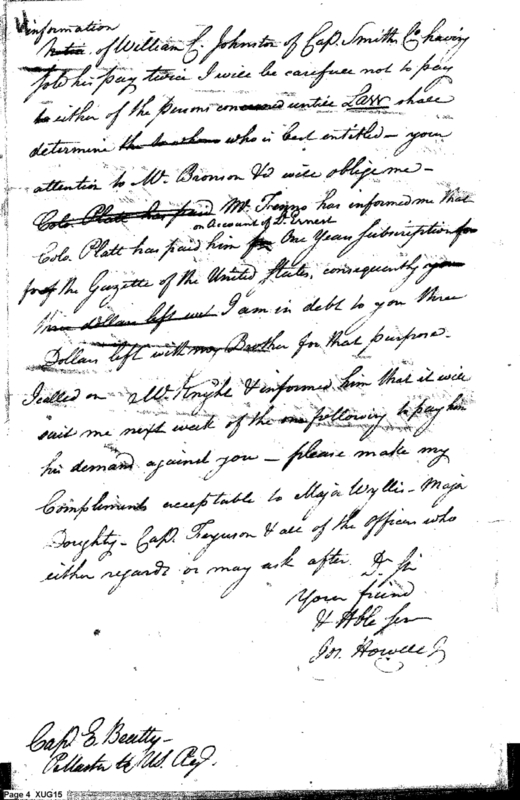 information
Notice of William C. Johnston of Cap. Smiths Co having
sold his pay twice I will be carefull not to pay
to either of the persons concerned untill Law shall
determine who is best entitled - your
attention to Mr. Bronson &c will oblige me -
Colo. Platt has paid Mr. Fenno has informed me that
on Account of Dr. Ernest
Colo. Platt has paid him for One Years Subscription for
for of the Gazette of the United States, consequently you
three dollars left I am in debt to you three
Dollars left with my Brother for that purpose -
I called on Mr. Knight & informed him that it will
suit me next week or the one following to pay him
his demand against you - please make my
Compliments acceptable to Major Wyllis - Major
Doughty - Cap. Ferguson & all of the officers who
either regards or may ask after. Dr Sir
Your friend
& Hble Ser
Jos. Howell Jr
Cap. E. Beatty -
PMaster to US. Reg.
Page 4 XUG15